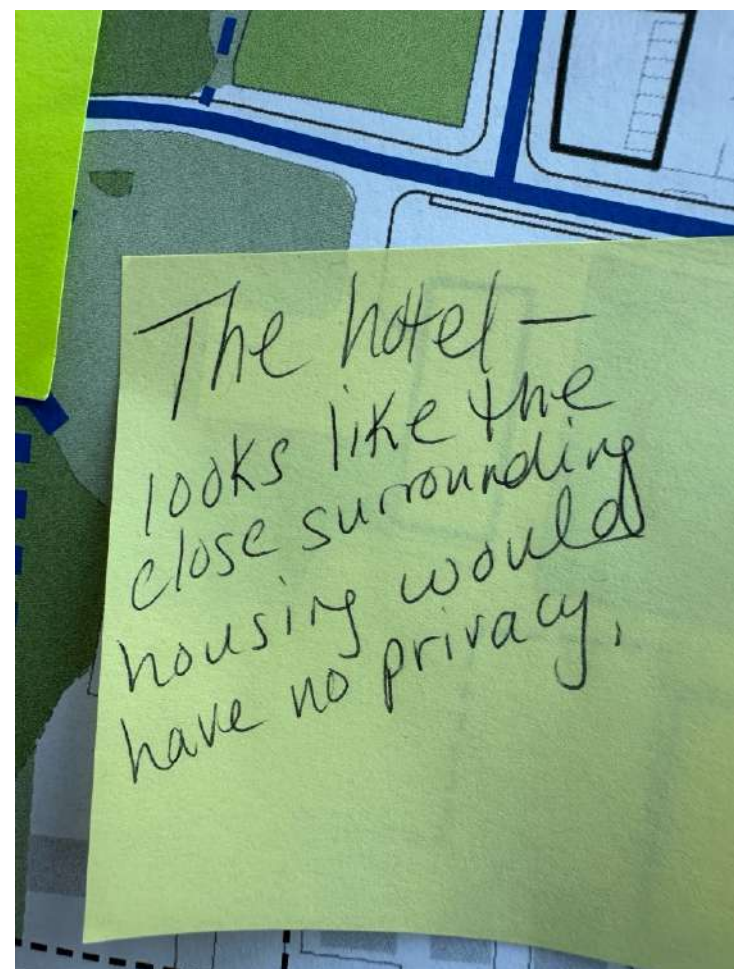 The hotel —
looks like the
close surrounding
housing would
have no privacy.